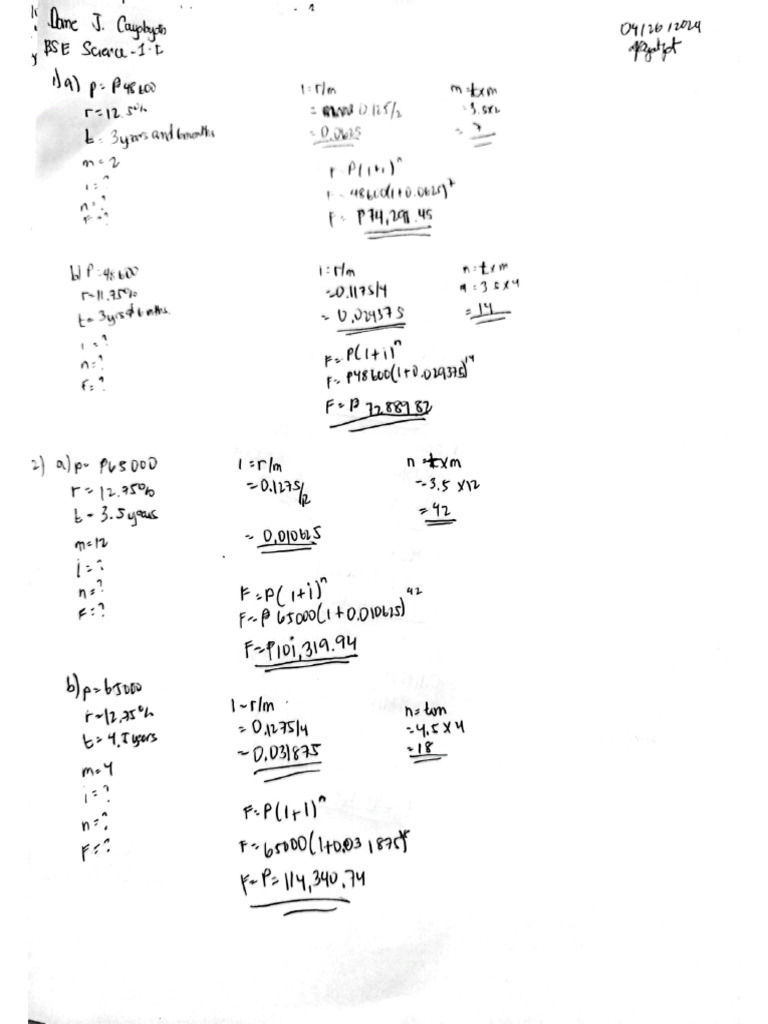 Dane J.
04/26/2024
BSE Science-1.E
1) a) p= ₱48600
r=12.5%
t= 3 years and 6 months
m=2
i=?
n=?
F=?
i=r/m
= 0.125/2
= 0.0625
n=txm
=3.5x2
= 7
F=P(1+i)^n
F=48600(1+0.0625)^7
F= ₱74,291.45
b) P=48600
r=11.75%
t=3yrs & 6 months.
i=?
n=?
F=?
i=r/m
=0.1175/4
= 0.029375
n=txm
n=3.5x4
=14
F=P(1+i)^n
F=₱48600(1+0.029375)^14
F=₱ 72889.82
2) a) p= ₱65000
r=12.75%
t=3.5 years
m=12
i=?
n=?
F=?
i=r/m
=0.1275/12
= 0.010625
n=txm
=3.5 x12
=42
F=P(1+i)^n
F=₱65000(1+0.010625)^42
F=₱101,319.94
b) p=65000
r=12.75%
t=4.5 years
m=4
i=?
n=?
F=?
i=r/m
=0.1275/4
=0.031875
n=txm
=4.5x4
=18
F=P(1+i)^n
F=65000(1+0.031875)^18
F=P=114,340.74